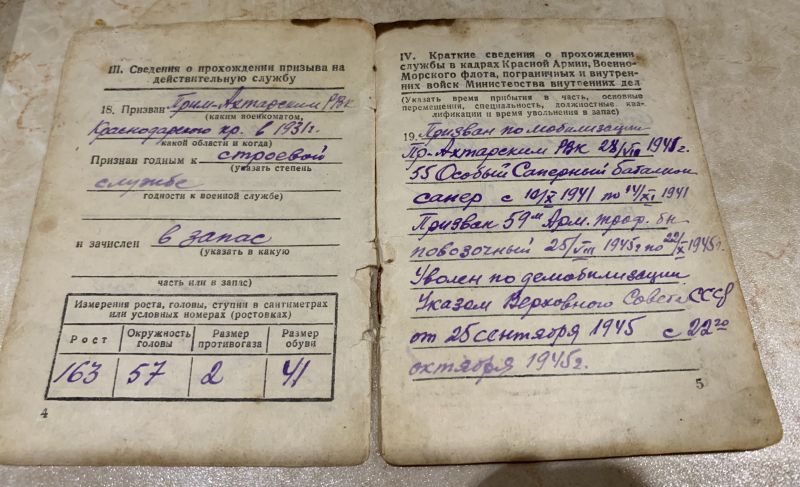 III. Сведения о прохождении призыва на
действительную службу
18. Призван Прим-Ахтарским РВК
(каким военкоматом,
Краснодарского кр. в 1931г.
какой области и когда)
Признан годным к строевой
(указать степень
службе
годности к военной службе)
и зачислен в запас
(указать в какую
часть или в запас)
Измерения роста, головы, ступни в сантиметрах
или условных номерах (ростовках)
Рост Окружность головы Размер противогаза Размер обуви
163 57 2 41
4
IV. Краткие сведения о прохождении
службы в кадрах Красной Армии, Военно-
Морского флота, пограничных и внутрен-
них войск Министерства внутренних дел
(Указать время прибытия в часть, основные
перемещения, специальность, должностные ква-
лификации и время увольнения в запас)
19. Призван по мобилизации
Пр-Ахтарским РВК 28/VIII 1941г.
55 Особый Саперный баталион
сапер с 10/X 1941 по 14/XI 1941
Призван 59 Арм. троф. бн
повозочный 25/VIII 1945г по 22/X 1945г.
Уволен по демобилизации
Указом Верховного Совета СССР
от 25 сентября 1945 с 22го
октября 1945г.
5